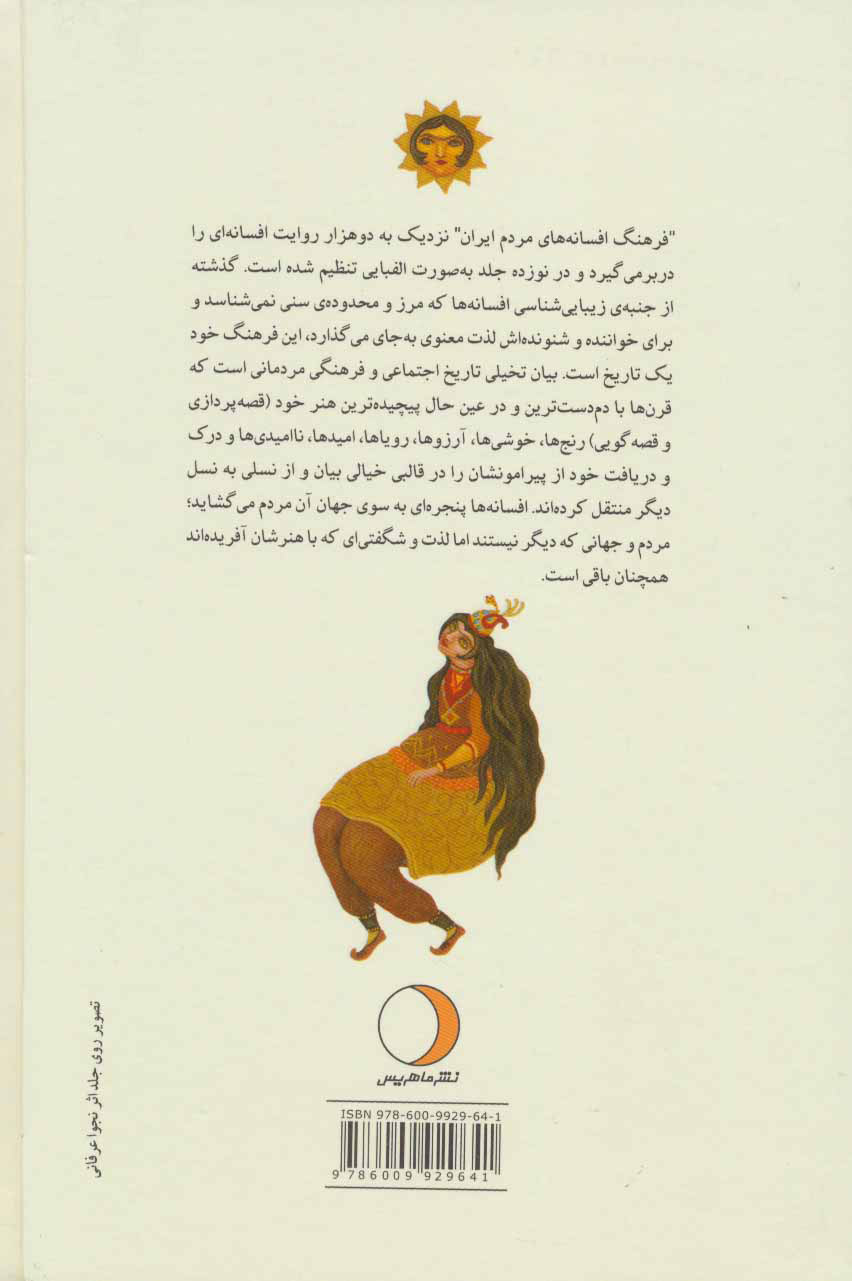 "فرهنگ افسانه‌های مردم ایران" نزدیک به دوهزار روایت افسانه‌ای را
دربرمی‌گیرد و در نوزده جلد به‌صورت الفبایی تنظیم شده است. گذشته
از جنبه‌ی زیبایی‌شناسی افسانه‌ها که مرز و محدوده‌ی سنی نمی‌شناسد و
برای خواننده و شنونده‌اش لذت معنوی به‌جای می‌گذارد، این فرهنگ خود
یک تاریخ است. بیان تخیلی تاریخ اجتماعی و فرهنگی مردمانی است که
قرن‌ها با دم‌دست‌ترین و در عین حال پیچیده‌ترین هنر خود (قصه‌پردازی
و قصه‌گویی) رنج‌ها، خوشی‌ها، آرزوها، رویاها، امیدها، ناامیدی‌ها و درک
و دریافت خود از پیرامونشان را در قالبی خیالی بیان و از نسلی به نسل
دیگر منتقل کرده‌اند. افسانه‌ها پنجره‌ای به سوی جهان آن مردم می‌گشاید؛
مردم و جهانی که دیگر نیستند اما لذت و شگفتی‌ای که با هنرشان آفریده‌اند
همچنان باقی است.
تصویر روی جلد اثر نجوا عرفانی
نشر ماهریس
ISBN 978-600-9929-64-1
9 786009 929641